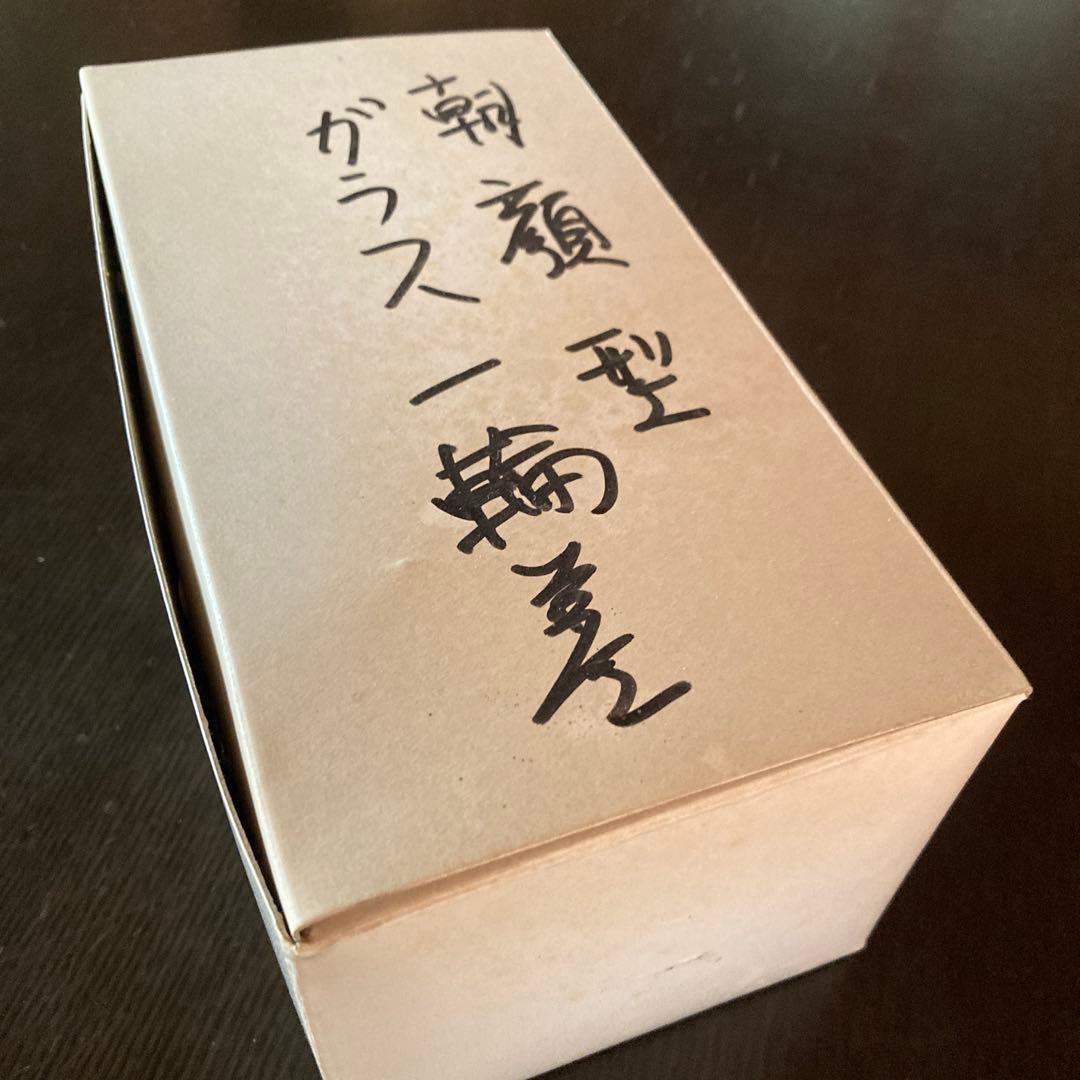 朝顔型
ガラス一輪差